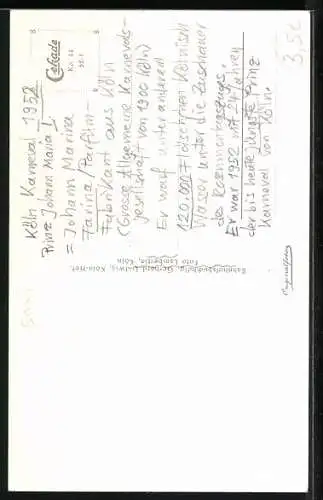 Köln Karneval 1952
Prinz Johann Maria I.
= Johann Marina
Farina/Parfüm-
Fabrikant aus Köln
(Grosse Allgemeine Karnevals-
gesellschaft von 1900 Köln)
Er warf unter anderem
120.000 Fläschchen Kölnisch
Wasser unter die Zuschauer
des Rosenmontagszugs.
Er war 1952 mit 24 Jahren
der bis heute jüngste Prinz
Karneval von Köln.
Bahnhofsbuchhdlg. Gerhard Ludwig, Köln-Hbf.
Foto Lambertin, Köln
Originalfoto
3,5€